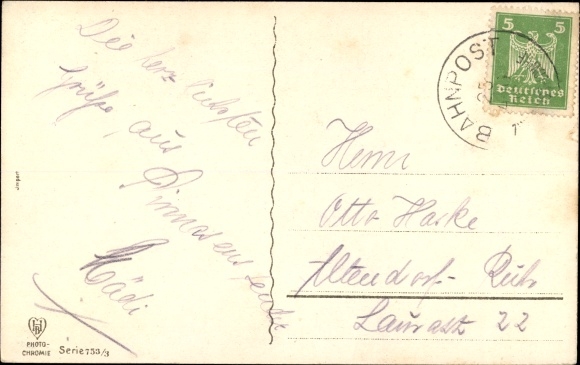 Die herzliebsten
Grüße, aus
Pirmasens sendet
Mädi
Herrn
Otto Harke
Altendorf-Ruhr
Laurastr 22
BAHNPOST
5 5
Deutsches
Reich
Import
PHOTO-
CHROMIE Serie 753/3